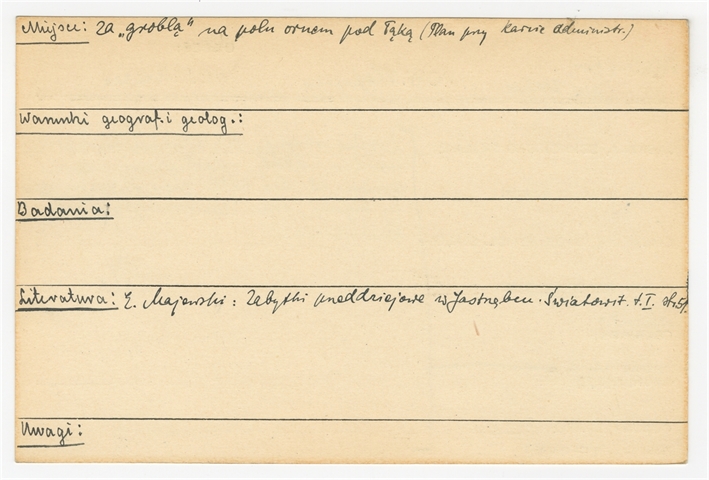 Miejsce: za „groblą“ na polu ornem pod Łąką (Plan przy karcie administr.)
Warunki geograf. i geolog.:
Badania:
Literatura: E. Majewski: Zabytki przeddziejowe w Jastrzębcu. Światowit. t. I. str. 51.
Uwagi: